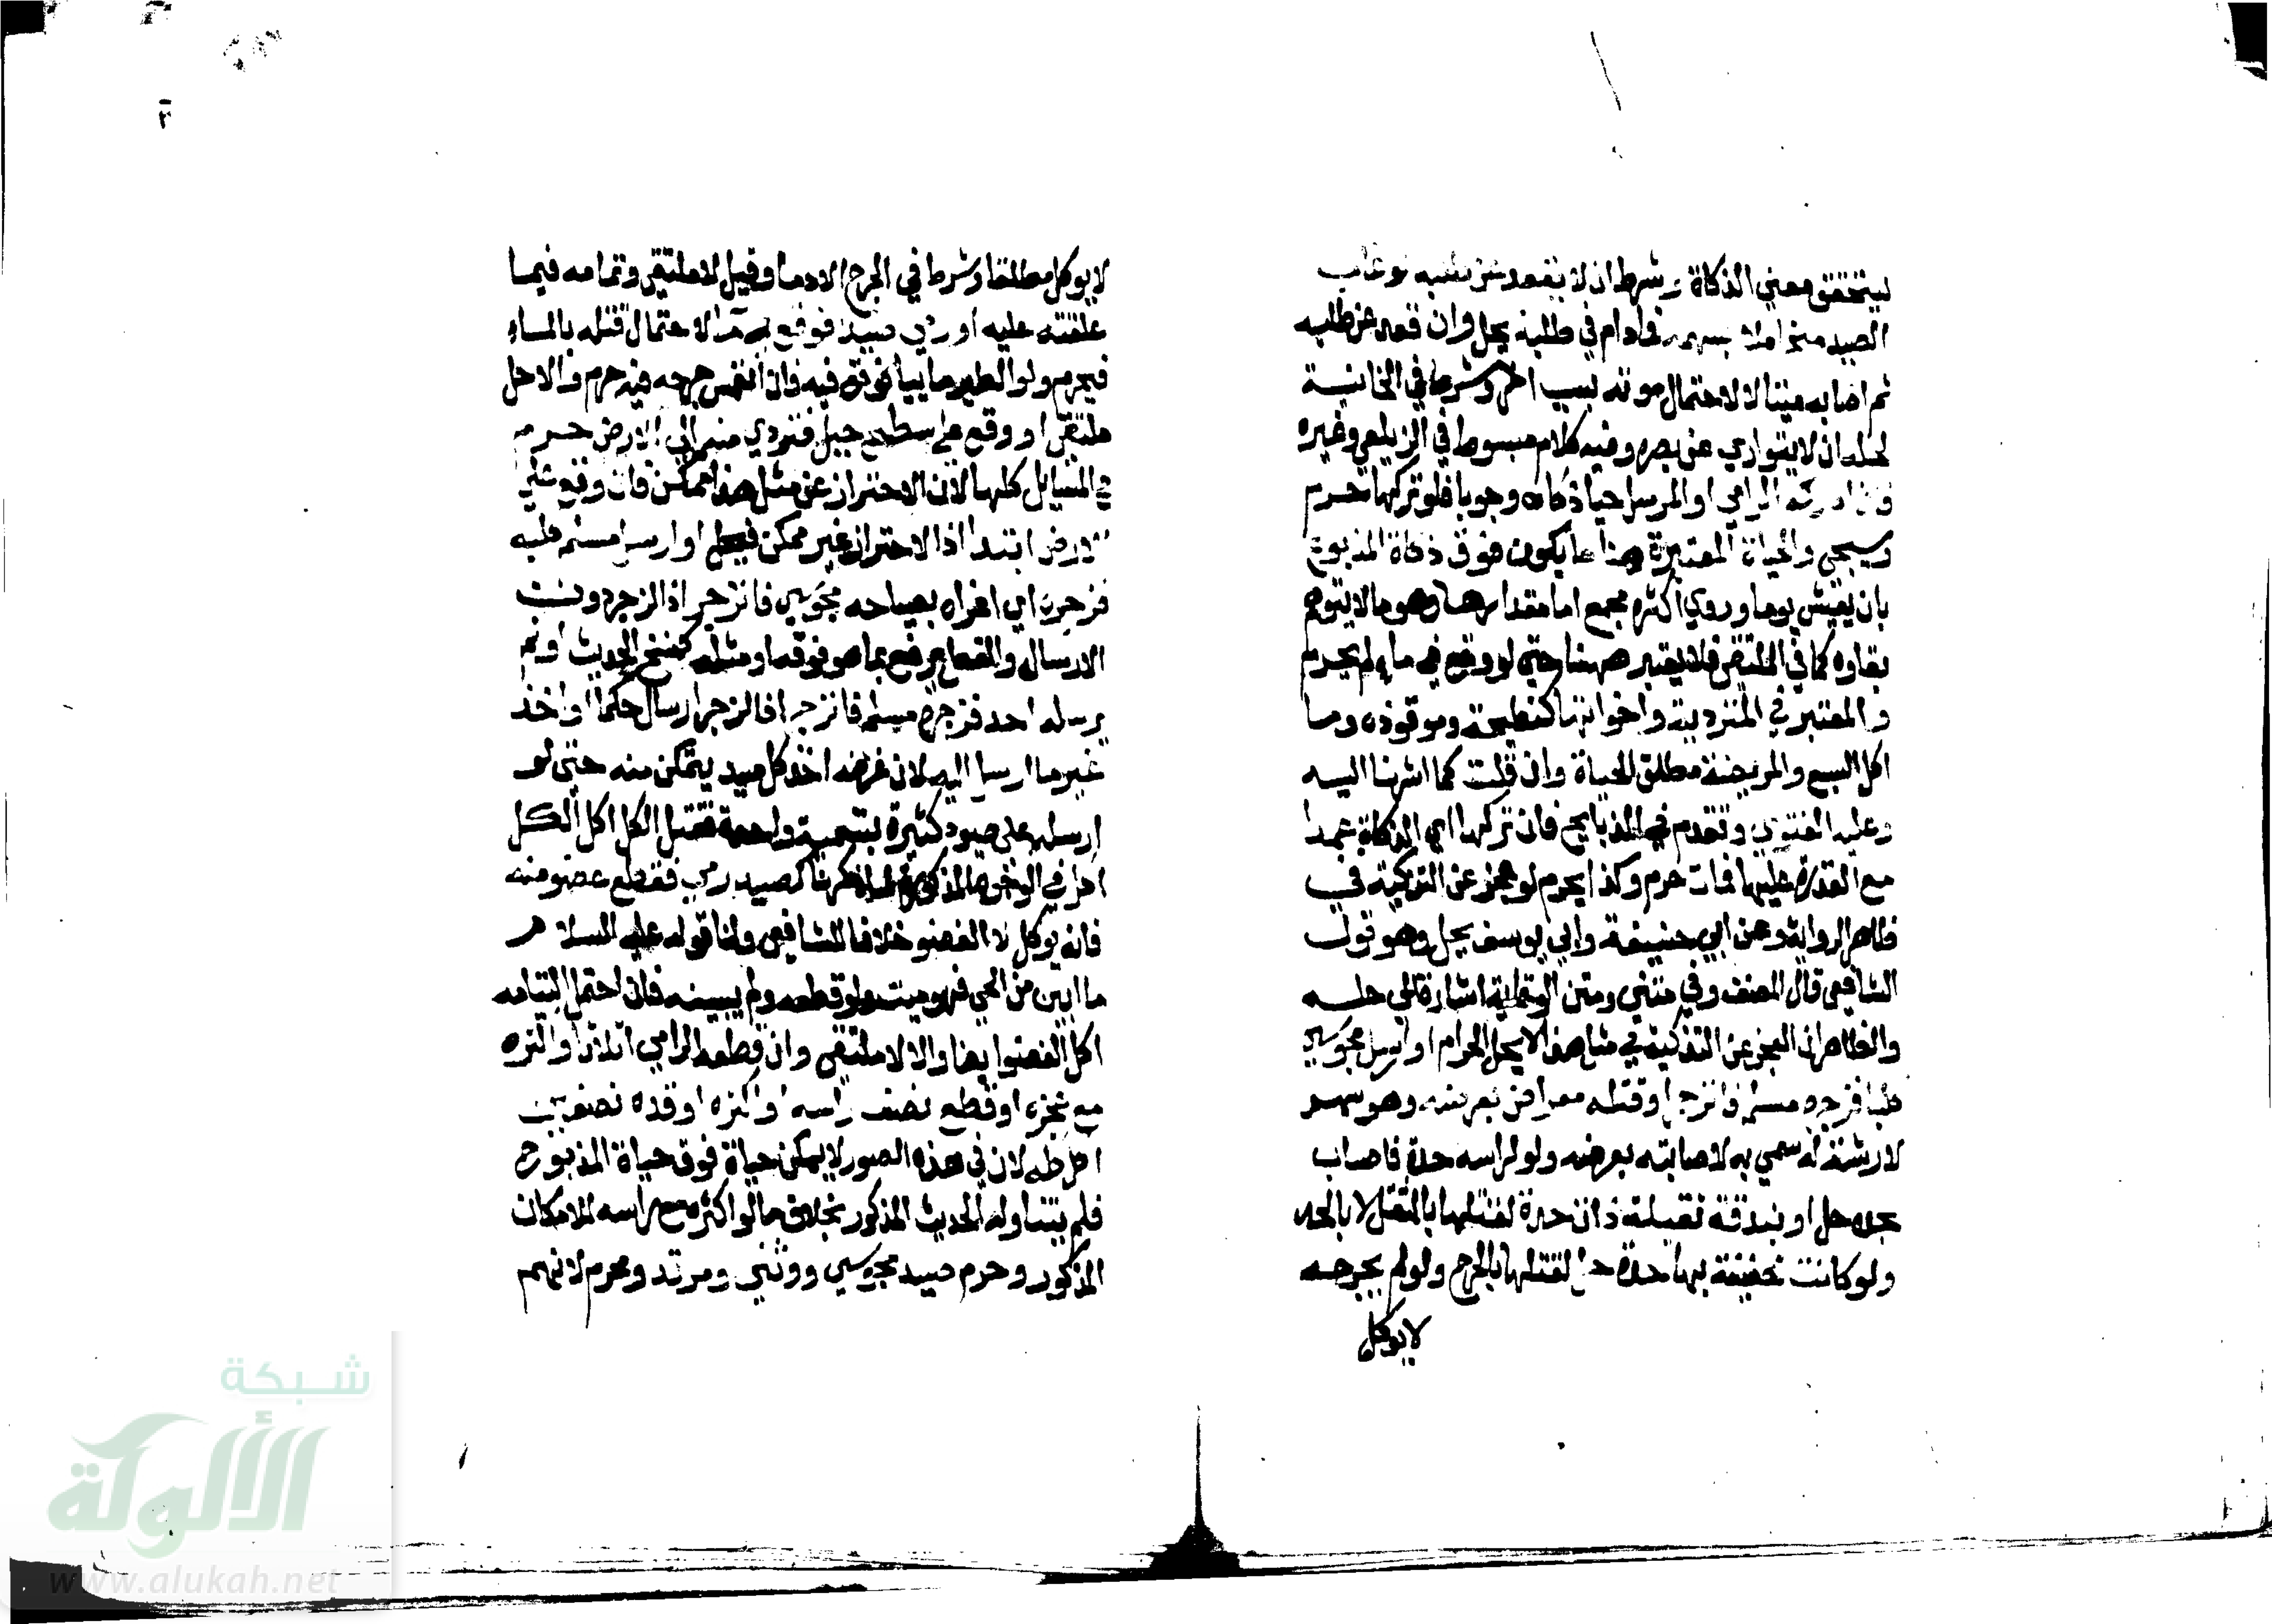 ليتحقق معني الذكاة وشرط ان لا يقعد عن طلبه لو غاب
الصيد متحاملا بسهمه فمادام في طلبه يحل وان قعد عن طلبه
ثم اصابه ميتا لا لاحتمال موته بسبب اخر وشرط في الخانية
لحله ان لا يتواري عن بصره وفيه كلام مبسوط في الزيلعي وغيره
فان ادركه الرامي او المرسل حيا ذكاه وجوبا فلو تركها حرم
وسيجي والحياة المعتبرة هنا ما يكون فوق ذكاة المذبوح
بان يعيش يوما وروي اكثره مجمع اما مقدارها وهو مالا يتوهم
بقاوه كما في الملتقي فلا يعتبر ههنا حتي لو وقع في ماء لم يحرم
والمعتبر في المتردية واخواتها كنطيحة وموقوذه وما
اكل السبع والمريضة مطلق الحياة وان قلت كما اشرنا اليه
وعليه الفتوي وتقدم في الذبايح فان تركها اي الذكاة عمدا
مع القدرة عليها فمات حرم وكذا يحرم لو عجز عن التزكية في
ظاهر الرواية وعن ابي حنيفة وابي يوسف يحل وهو قول
الشافعي قال المصنف وفي متني ومتن الوقاية اشارة الي حله
والظاهر ان العجز عن التذكية في مثل هذا لا يحل الحرام او ارسل مجوسي
كلبا فزجره مسلم فانزجر او قتله معراض بعرضه وهو سهم
لا ريش له سمي به لاصابته بعرضه ولو لراسه حدة فاصاب
بحده حل او بندقة ثقيلة ذات حدة لقتلها بالثقل لا بالحد
ولو كانت خفيفة بها حدة حل لقتلها بالجرح ولو لم يجرحه
لا يوكل
لا يوكل مطلقا وشرط في الجرح الادما وقيل لا ملتقي وتمامه فيما
علقته عليه او رمي صيدا فوقع في ماء لاحتمال قتله بالماء
فيحرم ولو الطير مائيا فوقع فيه فان انغمس جرحه فيه حرم والا حل
ملتقي او وقع علي سطح جبل فتردي منه الي الارض حرم
في المسايل كلها لان الاحتراز عن مثل هذا ممكن فان وقع علي
الارض ابتدا اذ الاحتراز غير ممكن فيحل او ارسل مسلم كلبه
فزجره اي اغراه بصياحه مجوسي فانزجر اذ الزجر دون
الارسال والفعل يرفع بما هو فوقه او مثله كنسخ الحديث او لم
يرسله احد فزجره مسلم فانزجر اذ الزجر ارسال حكما او اخذ
غير ما ارسل اليه لان غرضه اخذ كل صيد يتمكن منه حتي لو
ارسله علي صيود كثيرة بتسمية واحدة فقتل الكل اكل الكل
اكل في الوجوه المذكورة لما ذكرنا كصيد رمي فقطع عضو منه
فانه يوكل لا العضو خلافا للشافعي ولنا قوله عليه السلام
ما ابين من الحي فهو ميت ولو قطعه ولم يبينه فان احتمل التيامه
اكل العضو ايضا والا لا ملتقي وان قطعه الرامي اثلاثا واكثره
مع عجزه او قطع نصف راسه او اكثره او قده نصفين
اكل كله لان في هذه الصور لا يمكن حياة فوق حياة المذبوح
فلم يتناوله الحديث المذكور بخلاف ما لو اكثره مع راسه للامكان
المذكور وحرم صيد مجوسي ووثني ومرتد ومحرم لانهم
شبكة
الألوكة
www.alukah.net